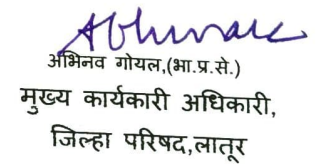 Abhinav
अभिनव गोयल,(भा.प्र.से.)
मुख्य कार्यकारी अधिकारी,
जिल्हा परिषद,लातूर